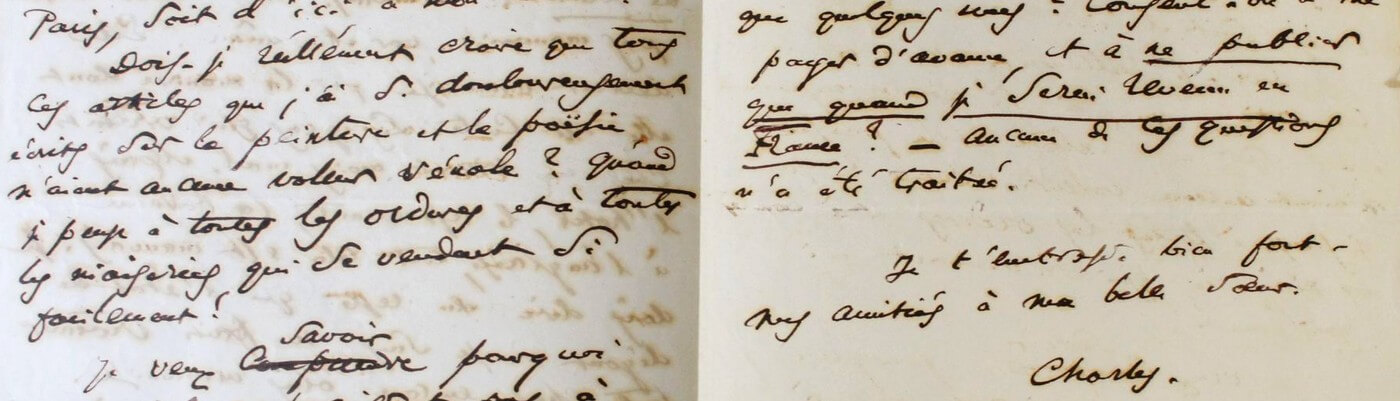 Paris, soit d'ici à mon
Dois-je réellement croire que tous
ces articles que j'ai si douloureusement
écrits sur la peinture et la poësie,
n'aient aucune valeur vénale ? Quand
je pense à toutes les ordures et à toutes
les niaiseries qui se vendent si
facilement !
savoir
Je veux comprendre pourquoi
à
que quelques unes ? Consent-on à me
payer d'avance, et à ne publier
que quand je serai revenu en
France ? — aucune de ces questions
n'a été traitée.
Je t'embrasse bien fort —
mes amitiés à ma belle soeur.
Charles.